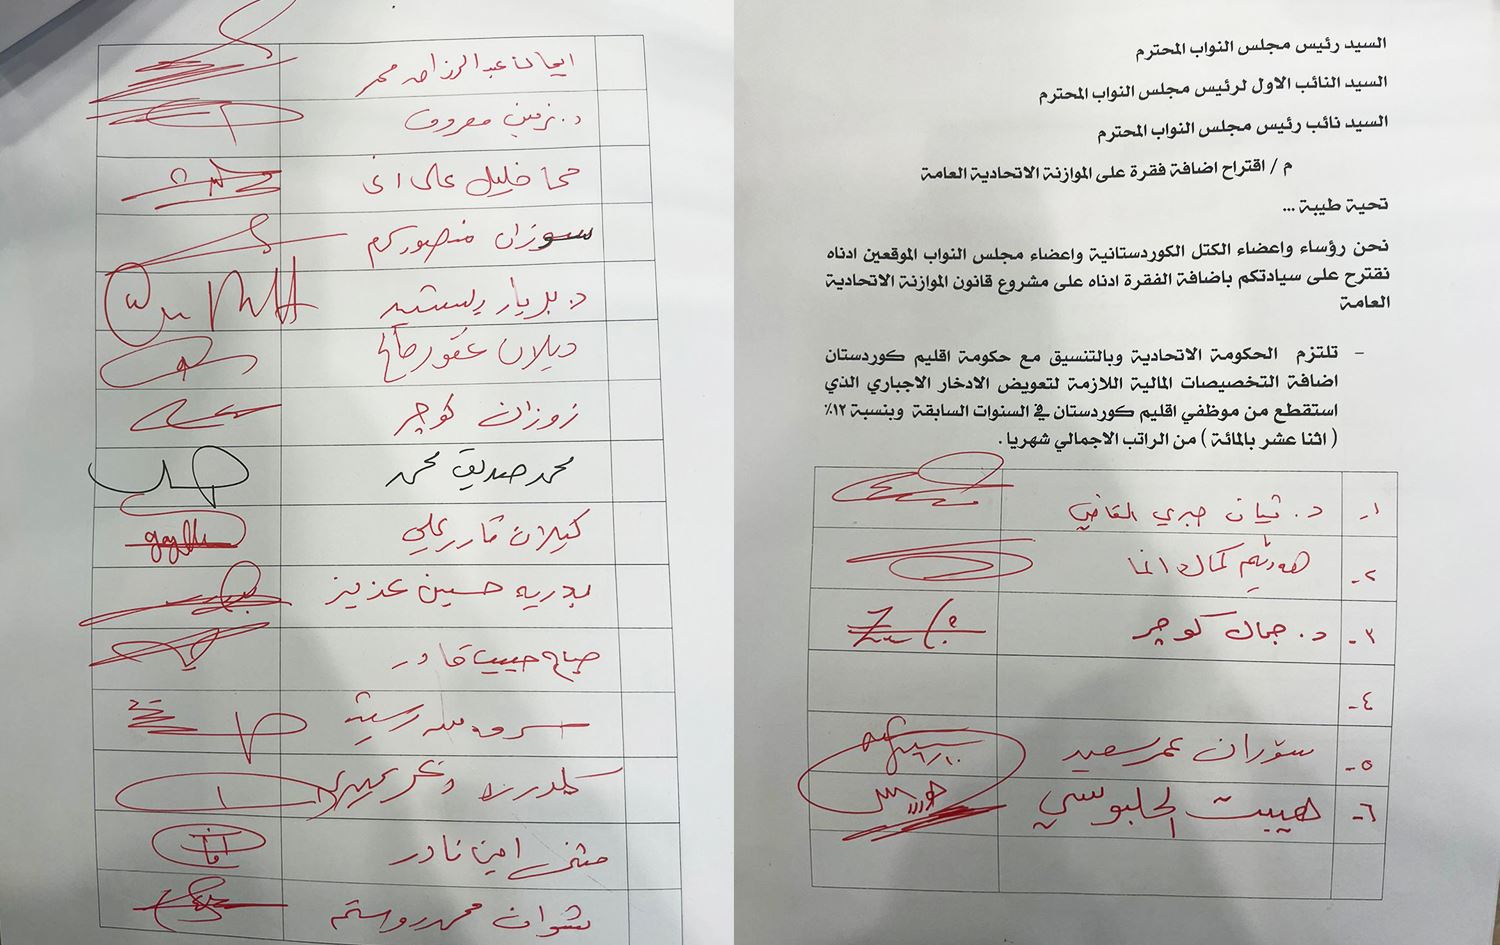 السيد رئيس مجلس النواب المحترم
السيد النائب الاول لرئيس مجلس النواب المحترم
السيد نائب رئيس مجلس النواب المحترم
م / اقتراح اضافة فقرة على الموازنة الاتحادية العامة
تحية طيبة ...
نحن رؤساء واعضاء الكتل الكوردستانية واعضاء مجلس النواب الموقعين ادناه
نقترح على سيادتكم باضافة الفقرة ادناه على مشروع قانون الموازنة الاتحادية
العامة
- تلتزم الحكومة الاتحادية وبالتنسيق مع حكومة اقليم كوردستان
اضافة التخصيصات المالية اللازمة لتعويض الادخار الاجباري الذي
استقطع من موظفي اقليم كوردستان في السنوات السابقة وبنسبة ١٢٪
( اثنا عشر بالمائة ) من الراتب الاجمالي شهريا .
١- د. ڤیان صبري
٢- كمال
٣- د. جمال كوچر
٤-
٥- سۆران عمر سعيد
٦- هيبت الحلبوسي
ايمان عبد الرزاق محمد
د. نرمين معروف
خليل علي
سوزان منصور كرم
د. بريار رشيد
ديلان غفور صالح
زوزان كوچر
محمد صديق محمد
كيلان قادر علي
بدرية حسين عزيز
صباح حبيب قادر
سروه
مثنى امين نادر
شوان محمد روستم